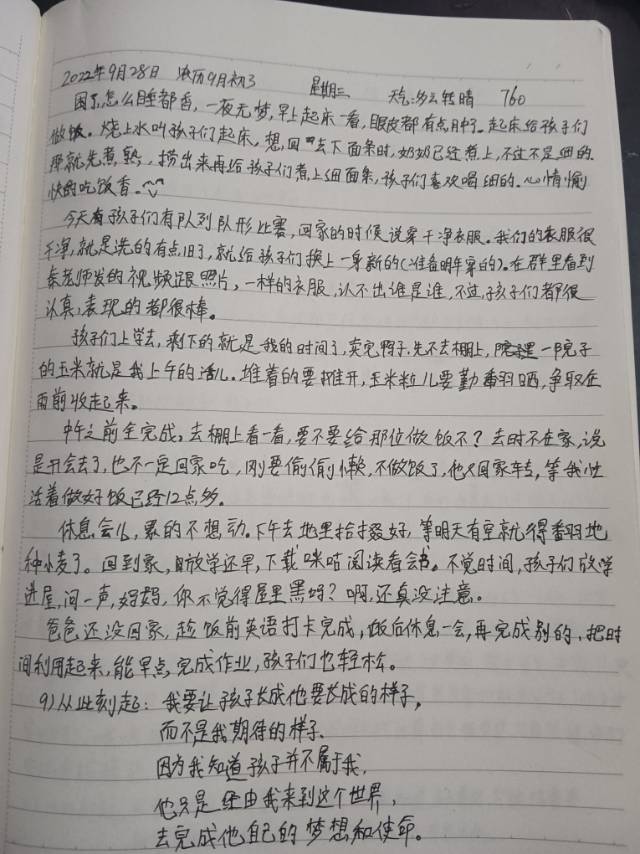 2022年9月28日 农历9月初3 星期三 天气:多云转晴 760
困了,怎么睡都香,一夜无梦,早上起床一看,眼皮都有点肿了。起床给孩子们
做饭。烧上水叫孩子们起床,想回去下面条时,奶奶已经煮上,不过不是细的.
那就先煮熟,捞出来再给孩子们煮上细面条,孩子们喜欢喝细的.心情愉
快的吃饭香。
今天有孩子们有队列队形比赛,回家的时候说穿干净衣服。我们的衣服很
干净,就是洗的有点旧了,就给孩子们换上一身新的(准备明年穿的)。在群里看到
秦老师发的视频跟照片,一样的衣服,认不出谁是谁,不过,孩子们都很
认真,表现的都很棒。
孩子们上学去,剩下的就是我的时间了,卖完鸭子.先不去棚上,院里一院子
的玉米就是我上午的活儿。堆着的要推开,玉米粒儿要勤翻晒,争取在
雨前收起来。
中午之前全完成。去棚上看一看,要不要给那位做饭不?去时不在家,说
是开会去了,也不一定回家吃,刚要偷偷懒,不做饭了,他又回家转,等我忙
活着做好饭已经12点多。
休息会儿,累的不想动.下午去地里拾掇好,等明天有空就得翻地
种小麦了。回到家,离放学还早,下载咪咕阅读看会书。不觉时间,孩子们放学
进屋,问一声,妈妈,你不觉得屋里黑吗?啊,还真没注意。
爸爸还没回家,趁饭前英语打卡完成,饭后休息一会,再完成别的.把时
间利用起来,能早点完成作业,孩子们也轻松。
9)从此刻起:我要让孩子长成他要长成的样子,
而不是我期待的样子.
因为我知道孩子并不属于我,
他只是经由我来到这个世界,
去完成他自己的梦想和使命。